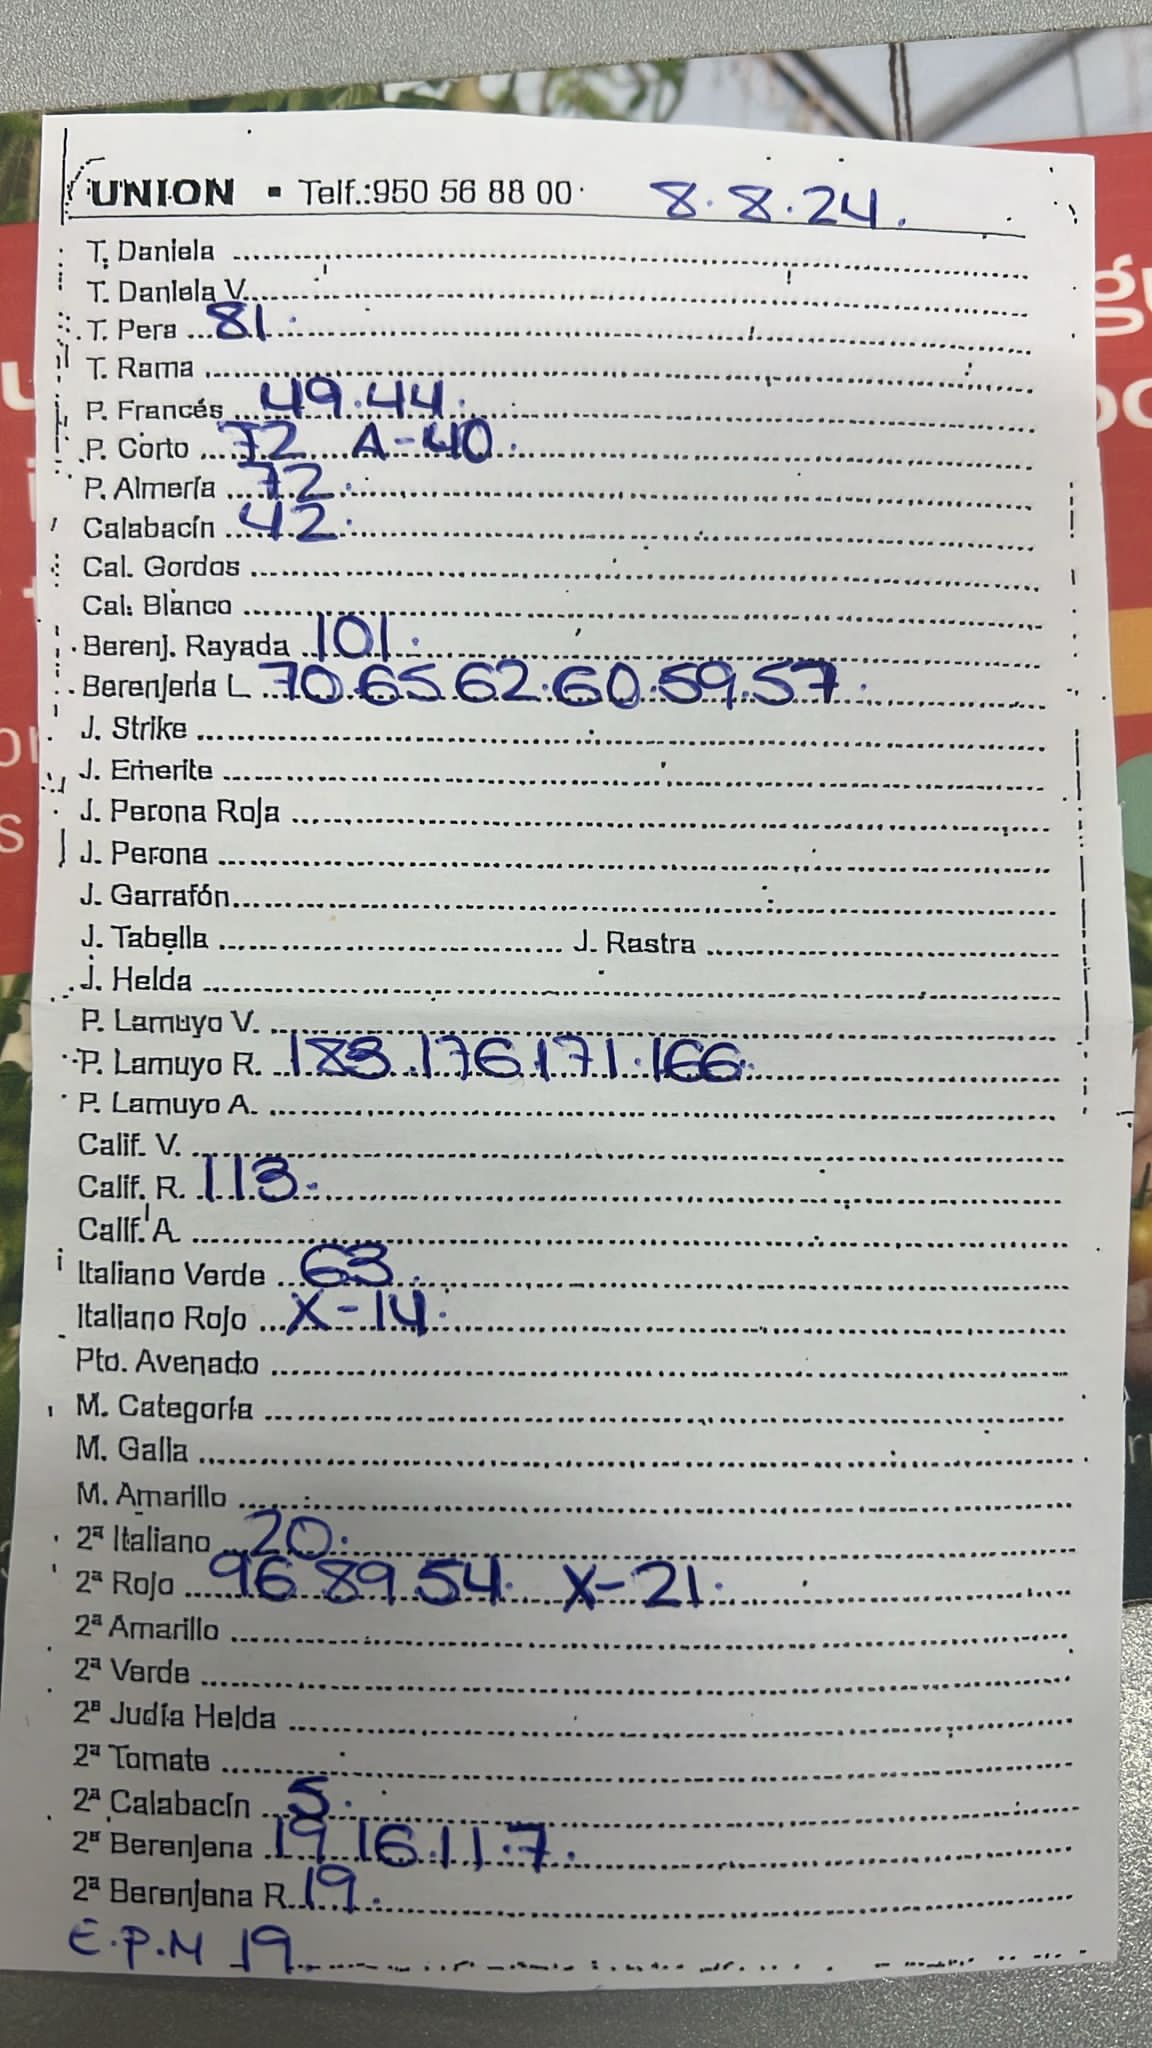 UNION ▪ Telf.:950 56 88 00 8.8.24.
T. Daniela
T. Daniela V.
T. Pera 81.
T. Rama
P. Francés 49.44.
P. Corto 72 A-40.
P. Almería 72.
Calabacín 42.
Cal. Gordos
Cal. Blanco
Berenj. Rayada 101.
Berenjena L 70.65.62.60.59.57.
J. Strike
J. Emerite
J. Perona Roja
J. Perona
J. Garrafón
J. Tabella J. Rastra
J. Helda
P. Lamuyo V.
P. Lamuyo R. 183.176.171.166.
P. Lamuyo A.
Calif. V.
Calif. R. 113.
Calif. A.
Italiano Verde 63.
Italiano Rojo X-14.
Pto. Avenado
M. Categoría
M. Galia
M. Amarillo
2ª Italiano 20.
2ª Rojo 96.89.54. X-21.
2ª Amarillo
2ª Verde
2ª Judía Helda
2ª Tomate
2ª Calabacín 5.
2ª Berenjena 19.16.11.7.
2ª Berenjena R. 19.
E.P.M 19